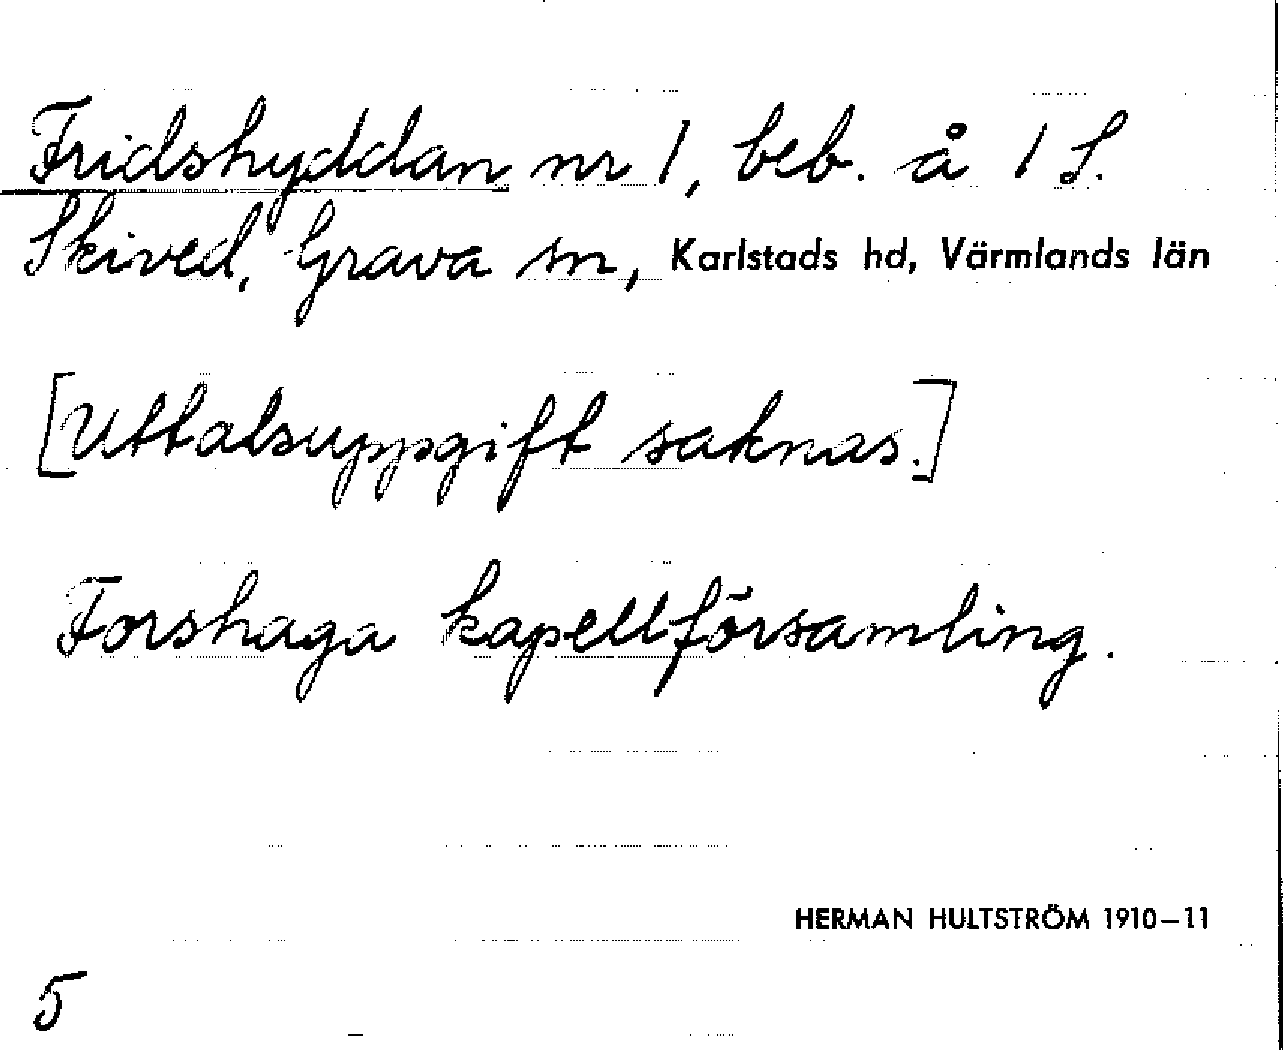 Fridshyddan nr 1, beb. å 1 S.
Skived, Grava sn, Karlstads hd, Värmlands län
[Uttalsuppgift saknas.]
Forshaga kapellförsamling.
HERMAN HULTSTRÖM 1910–11
5